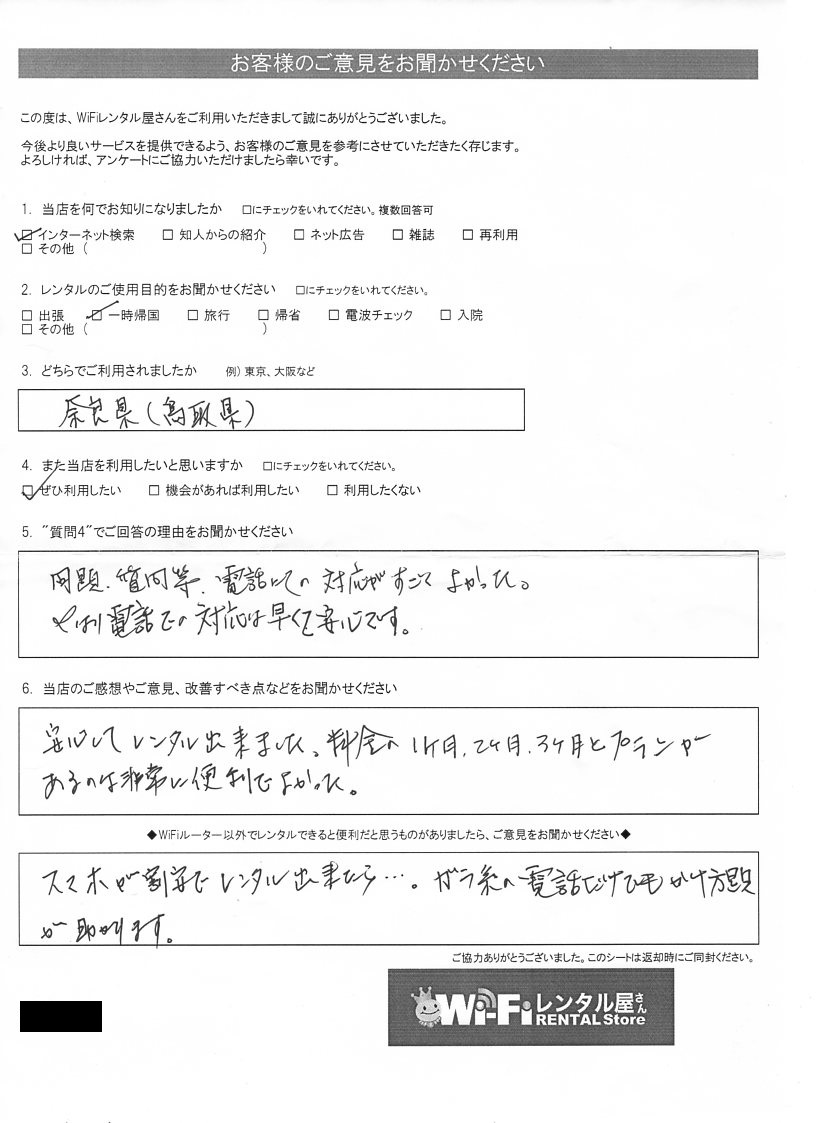 お客様のご意見をお聞かせください
この度は、WiFiレンタル屋さんをご利用いただきまして誠にありがとうございました。
今後より良いサービスを提供できるよう、お客様のご意見を参考にさせていただきたく存じます。
よろしければ、アンケートにご協力いただけましたら幸いです。
1. 当店を何でお知りになりましたか □にチェックをいれてください。複数回答可
☑ インターネット検索 □ 知人からの紹介 □ ネット広告 □ 雑誌 □ 再利用
□ その他（ ）
2. レンタルのご使用目的をお聞かせください □にチェックをいれてください。
□ 出張 ☑ 一時帰国 □ 旅行 □ 帰省 □ 電波チェック □ 入院
□ その他（ ）
3. どちらでご利用されましたか 例）東京、大阪など
奈良県(鳥取県)
4. また当店を利用したいと思いますか □にチェックをいれてください。
☑ ぜひ利用したい □ 機会があれば利用したい □ 利用したくない
5. “質問4”でご回答の理由をお聞かせください
問題、質問等、電話にての対応がすごくよかった。
やはり電話での対応は早くて安心です。
6. 当店のご感想やご意見、改善すべき点などをお聞かせください
安心してレンタル出来ました。料金の1ヶ月、2ヶ月、3ヶ月とプランが
あるのは非常に便利でよかった。
◆WiFiルーター以外でレンタルできると便利だと思うものがありましたら、ご意見をお聞かせください◆
スマホが割安でレンタル出来たら…。ガラ系の電話だけでもかけ放題
が助かります。
ご協力ありがとうございました。このシートは返却時にご同封ください。
Wi-Fiレンタル屋さん
RENTAL Store